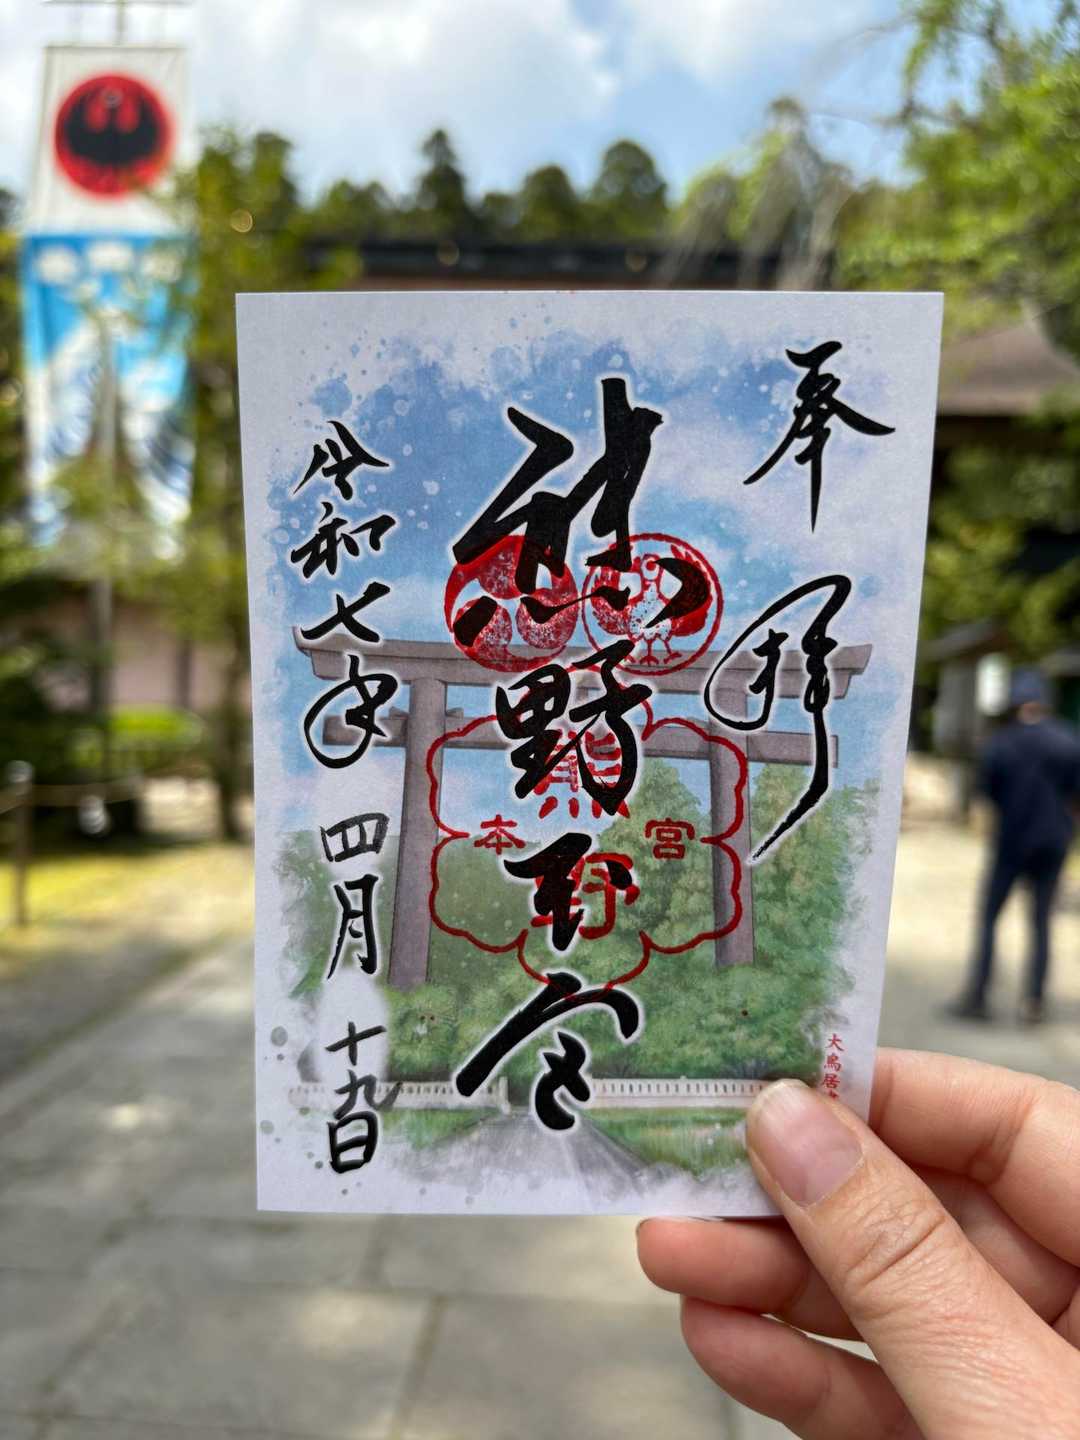 奉拝
熊野本宮
熊野
本宮
令和七年 四月 十九日
大鳥居